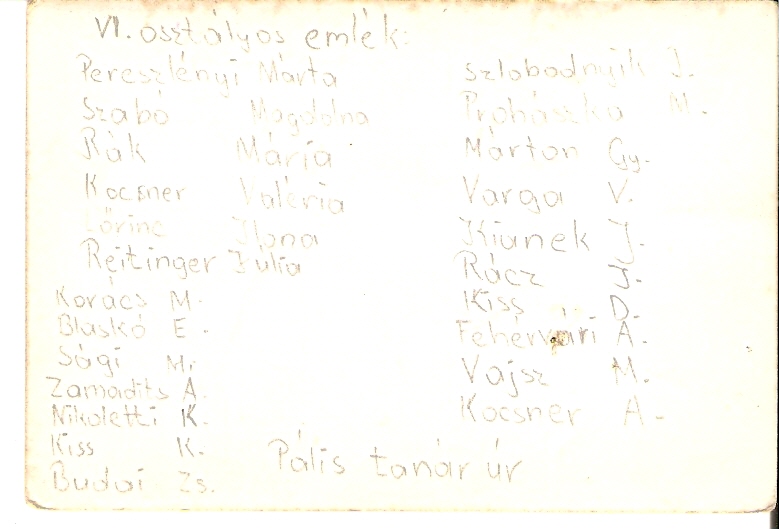 VI. osztályos emlék:
Pereszlényi Márta
Szabó Magdolna
Rák Mária
Kocsner Valéria
Lőrinc Ilona
Rejtinger Júlia
Kovács M.
Blaskó E.
Sági M.
Zamadits A.
Nikoletti K.
Kiss K.
Budai Zs.
Szlobodnyik J.
Prohászka M.
Márton Gy.
Varga V.
Kianek J.
Rácz J.
Kiss D.
Fehérvári A.
Vajsz M.
Kocsner A.
Pális tanár úr